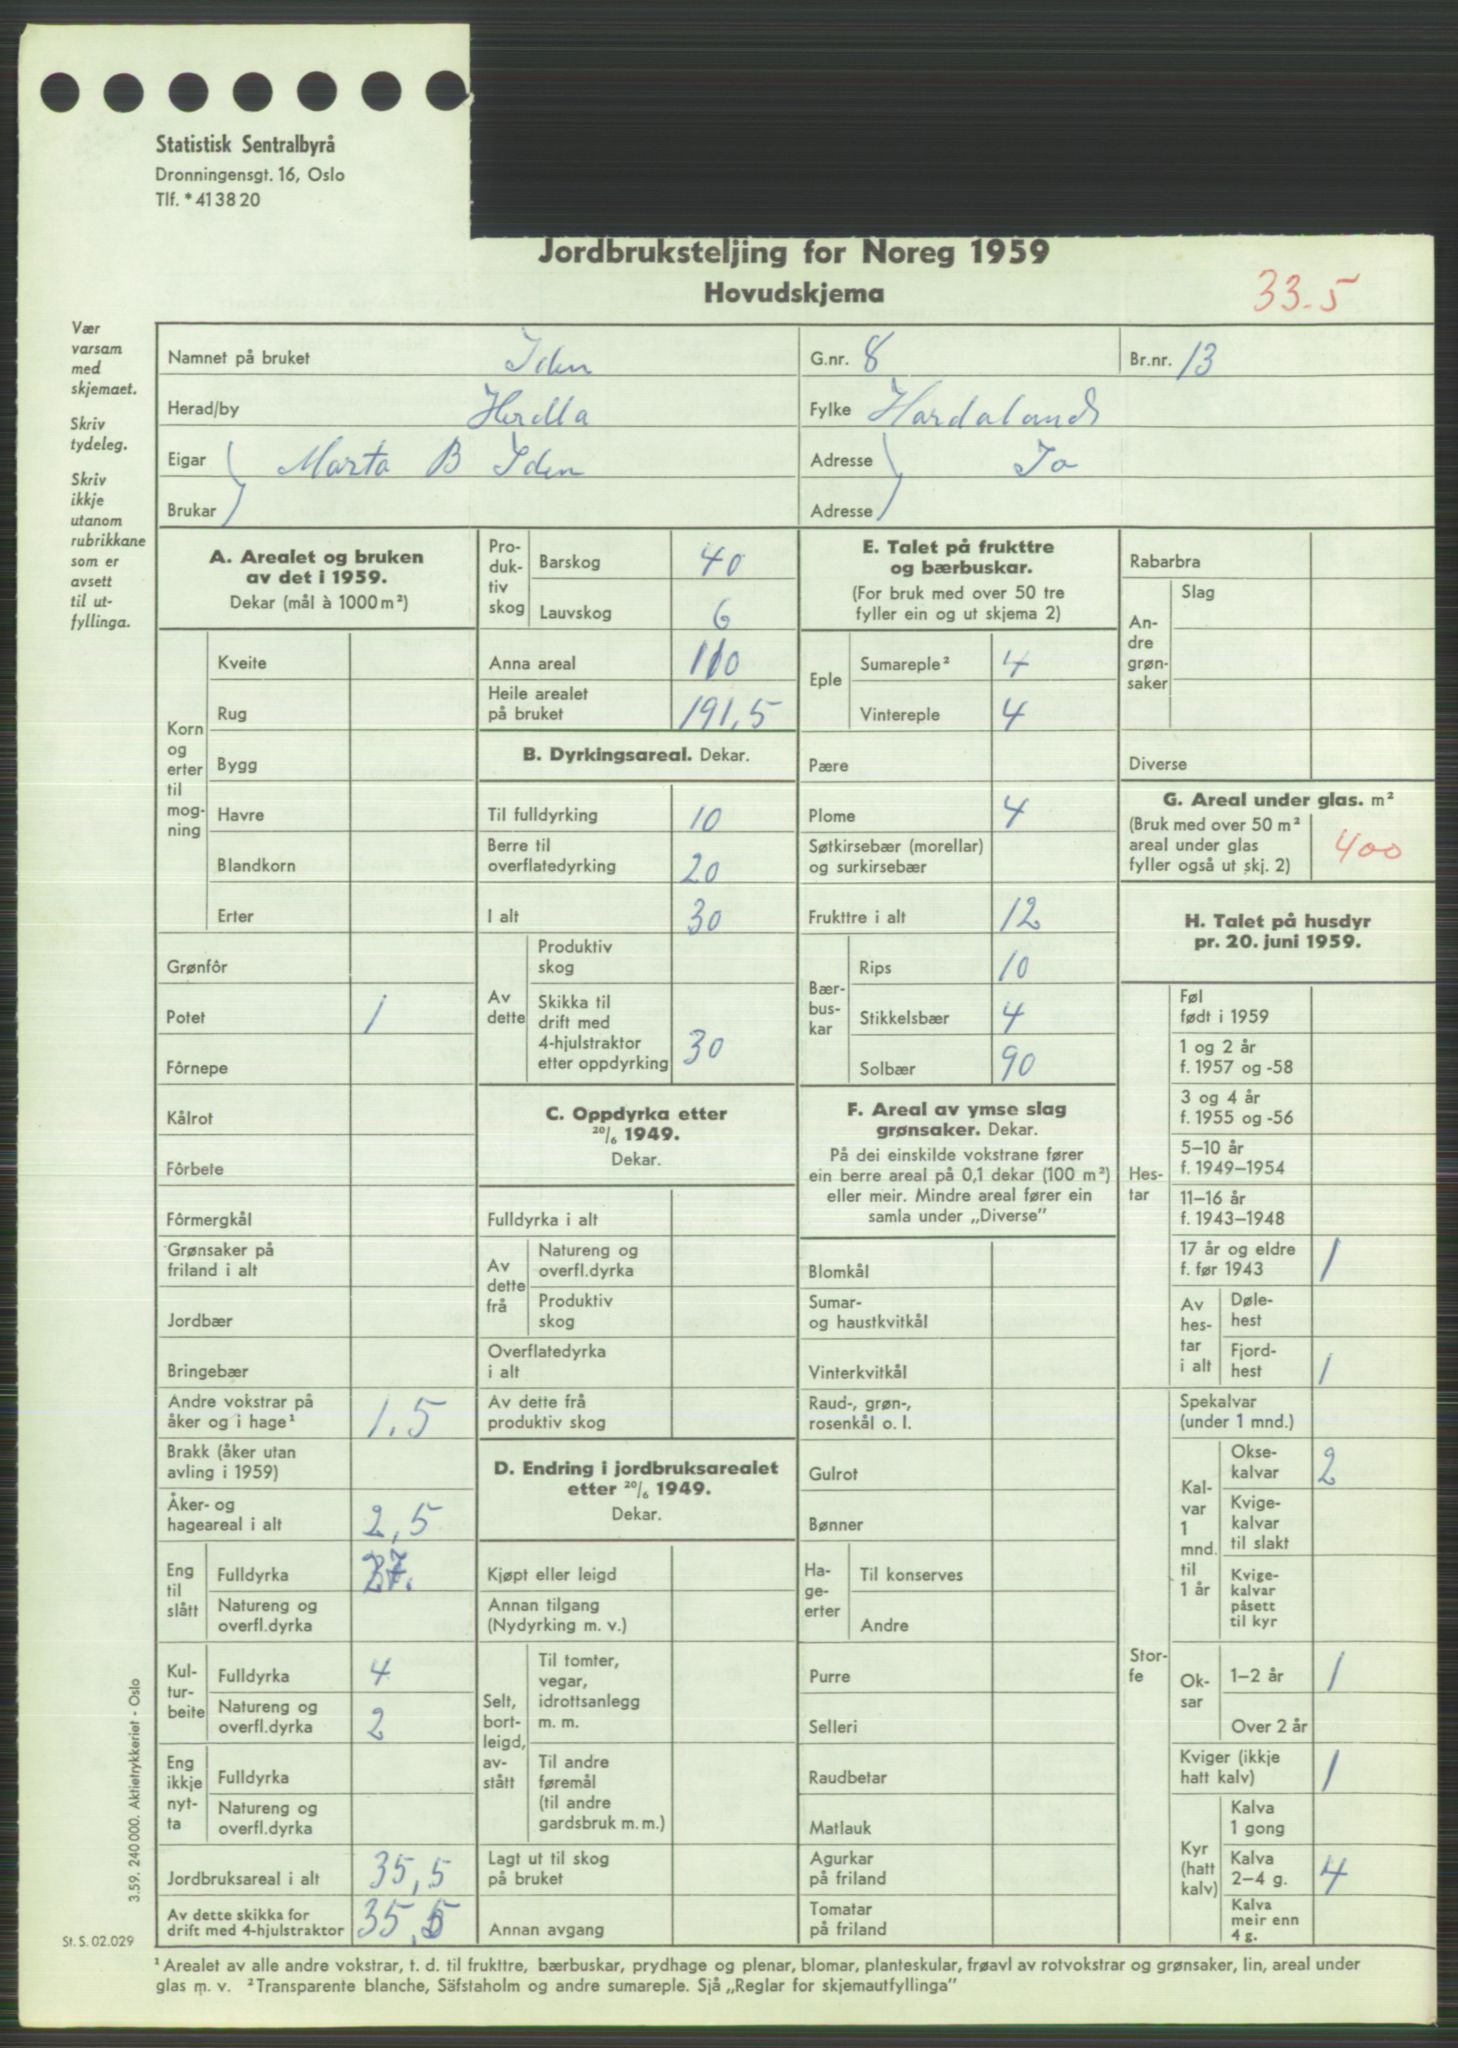 Statistisk Sentralbyrå
Dronningensgt. 16, Oslo
Tlf. * 41 38 20
Jordbruksteljing for Noreg 1959
Hovudskjema
33.5
Vær
varsam
med
skjemaet.
Skriv
tydeleg.
Skriv
ikkje
utanom
rubrikkane
som er
avsett
til ut-
fyllinga.
Namnet på bruket Iden G.nr. 8 Br.nr. 13
Herad/by Herdla Fylke Hordaland
Eigar Marta B Iden Adresse Io
Brukar Adresse
A. Arealet og bruken
av det i 1959.
Dekar (mål à 1000 m²)
Korn
og
erter
til
mog-
ning
Kveite
Rug
Bygg
Havre
Blandkorn
Erter
Grønfôr
Potet 1
Fôrnepe
Kålrot
Fôrbete
Fôrmergkål
Grønsaker på
friland i alt
Jordbær
Bringebær
Andre vokstrar på
åker og i hage¹ 1.5
Brakk (åker utan
avling i 1959)
Åker- og
hageareal i alt 2,5
Eng
til
slått
Fulldyrka 27.
Natureng og
overfl.dyrka
Kul-
tur-
beite
Fulldyrka 4
Natureng og
overfl.dyrka 2
Eng
ikkje
nyt-
ta
Fulldyrka
Natureng og
overfl.dyrka
Jordbruksareal i alt 35,5
Av dette skikka for
drift med 4-hjulstraktor 35,5
Pro-
duk-
tiv
skog
Barskog 40
Lauvskog 6
Anna areal 110
Heile arealet
på bruket 191,5
B. Dyrkingsareal. Dekar.
Til fulldyrking 10
Berre til
overflatedyrking 20
I alt 30
Av
dette
Produktiv
skog
Skikka til
drift med
4-hjulstraktor
etter oppdyrking 30
C. Oppdyrka etter
20/6 1949.
Dekar.
Fulldyrka i alt
Av
dette
frå
Natureng og
overfl.dyrka
Produktiv
skog
Overflatedyrka
i alt
Av dette frå
produktiv skog
D. Endring i jordbruksarealet
etter 20/6 1949.
Dekar.
Kjøpt eller leigd
Annan tilgang
(Nydyrking m. v.)
Selt,
bort-
leigd,
av-
stått
Til tomter,
vegar,
idrottsanlegg
m. m.
Til andre
føremål
(til andre
gardsbruk m. m.)
Lagt ut til skog
på bruket
Annan avgang
E. Talet på frukttre
og bærbuskar.
(For bruk med over 50 tre
fyller ein og ut skjema 2)
Eple
Sumareple² 4
Vintereple 4
Pære
Plome 4
Søtkirsebær (morellar)
og surkirsebær
Frukttre i alt 12
Bær-
bus-
kar
Rips 10
Stikkelsbær 4
Solbær 90
F. Areal av ymse slag
grønsaker. Dekar.
På dei einskilde vokstrane fører
ein berre areal på 0,1 dekar (100 m²)
eller meir. Mindre areal fører ein
samla under „Diverse”
Blomkål
Sumar-
og haustkvitkål
Vinterkvitkål
Raud-, grøn-,
rosenkål o. l.
Gulrot
Bønner
Ha-
ge-
erter
Til konserves
Andre
Purre
Selleri
Raudbetar
Matlauk
Agurkar
på friland
Tomatar
på friland
Rabarbra
An-
dre
grøn-
saker
Slag
Diverse
G. Areal under glas. m²
(Bruk med over 50 m²
areal under glas
fyller også ut skj. 2) 400
H. Talet på husdyr
pr. 20. juni 1959.
Hes-
tar
Føl
født i 1959
1 og 2 år
f. 1957 og -58
3 og 4 år
f. 1955 og -56
5–10 år
f. 1949–1954
11–16 år
f. 1943–1948
17 år og eldre
f. før 1943 1
Av
hes-
tar
i alt
Døle-
hest
Fjord-
hest 1
Stor-
fe
Spekalvar
(under 1 mnd.)
Kal-
var
1
mnd.
til
1 år
Okse-
kalvar 2
Kvige-
kalvar
til slakt
Kvige-
kalvar
påsett
til kyr
Ok-
sar
1–2 år 1
Over 2 år
Kviger (ikkje
hatt kalv) 1
Kyr
(hatt
kalv)
Kalva
1 gong
Kalva
2–4 g. 4
Kalva
meir enn
4 g.
3.59. 240 000. Aktietrykkeriet - Oslo
St. S. 02.029
¹ Arealet av alle andre vokstrar, t. d. til frukttre, bærbuskar, prydhage og plenar, blomar, planteskular, frøavl av rotvokstrar og grønsaker, lin, areal under
glas m. v. ² Transparente blanche, Säfstaholm og andre sumareple. Sjå „Reglar for skjemautfyllinga”